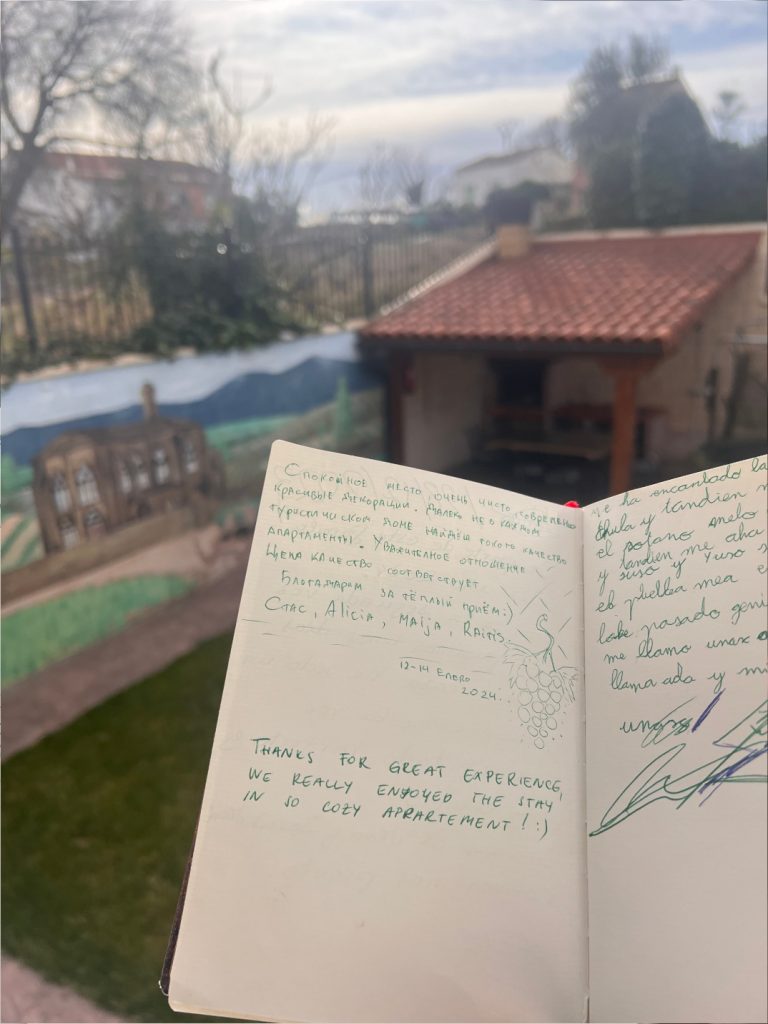 Спокойное место, очень чисто, современно
красивые декорации. Далеко не в каждом
туристическом доме найдёш такого качество
апартаменты. Уважителное отношение
Цена качество соответствует.
Благадарим за тёплый приём:)
Стас, Alicia, Maija, Raitis.
12-14 Enero
2024.
THANKS FOR GREAT EXPERIENCE,
WE REALLY ENJOYED THE STAY
IN SO COZY APRARTEMENT! :)
me ha encantado la
chula y tandien m
el
y tandien me aha
y suso y
el mea e
pasado geni
me llamo unax
llama ada y mi
unax